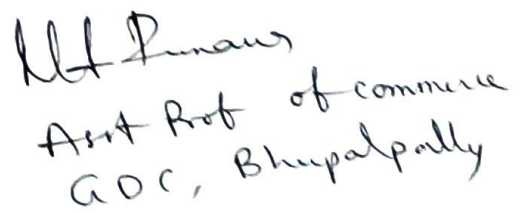 Asst Prof of commerce
GDC, Bhupalpally